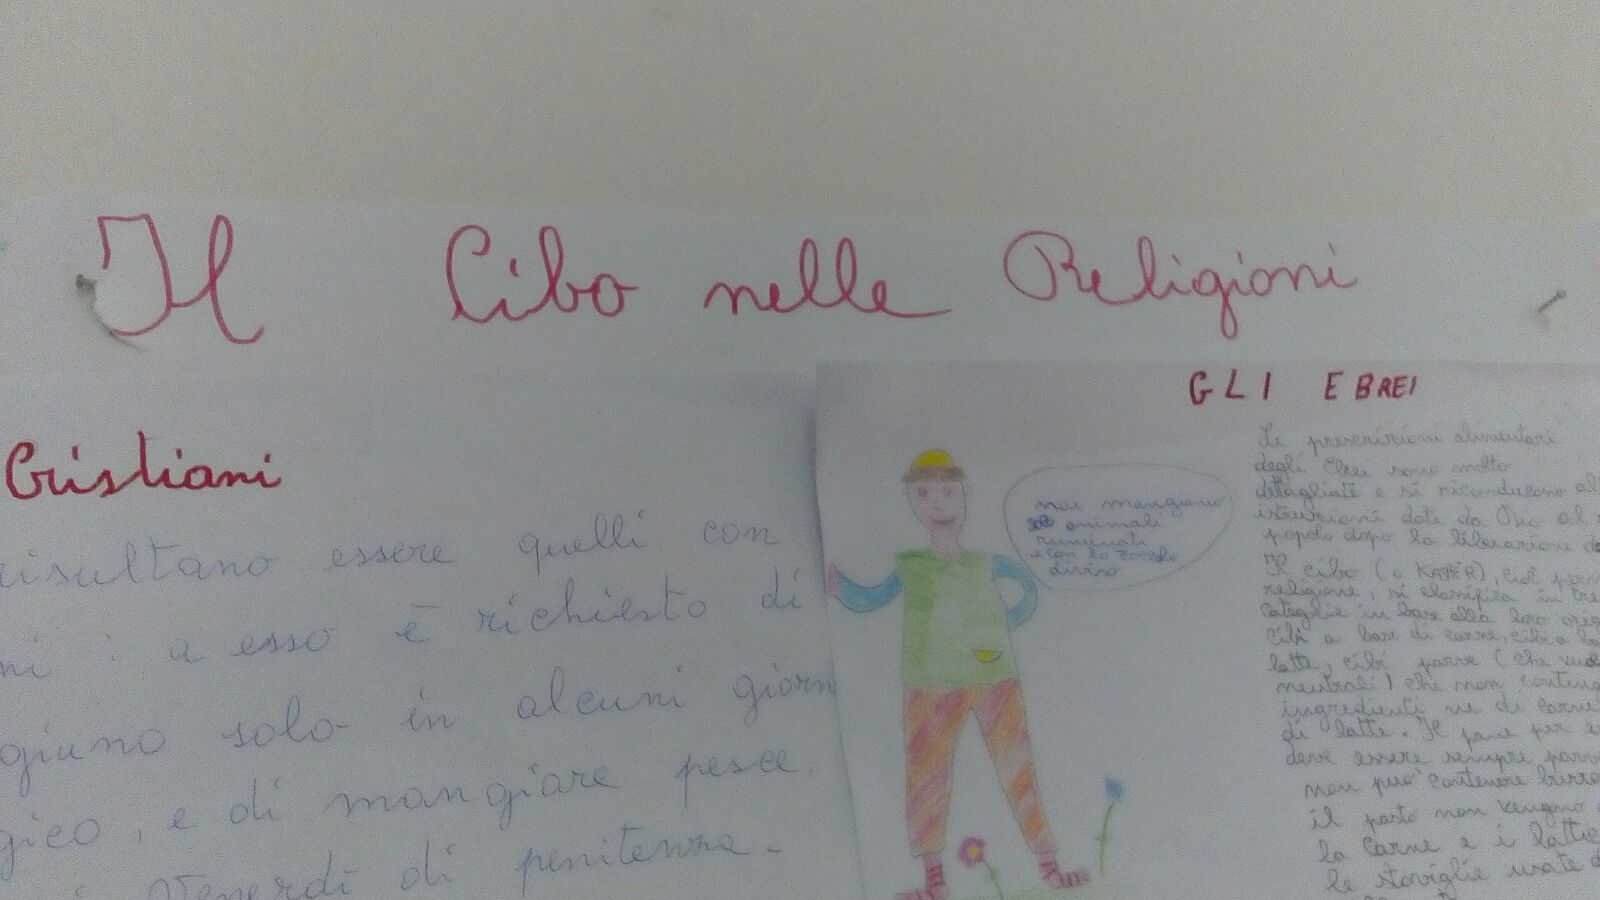 Il Cibo nelle Religioni
Cristiani
risultano essere quelli con
ni : a esso è richiesto di
giuno solo in alcuni giorn
gico, e di mangiare pesce
Venerdì di penitenza.
GLI EBREI
noi mangiamo
solo animali
ruminati
e con lo zoccolo
diviso
Le prescrizioni alimentari
degli Ebrei sono molto
dettagliate e si riconducono al
istruzioni date da Dio al
popolo dopo la liberazione d
Il cibo (o KASHER), cioè perm
religione, si classifica in tre
categlie in base alla loro orig
cibi a base di carne, cibi a ba
latte, cibi parve (che vuol
neutrali) che non contengo
ingredienti ne di carne
di latte. Il pane per e
deve essere sempre parv
non può contenere burro
il pasto non vengono
la carne e i lattic
le stoviglie usate